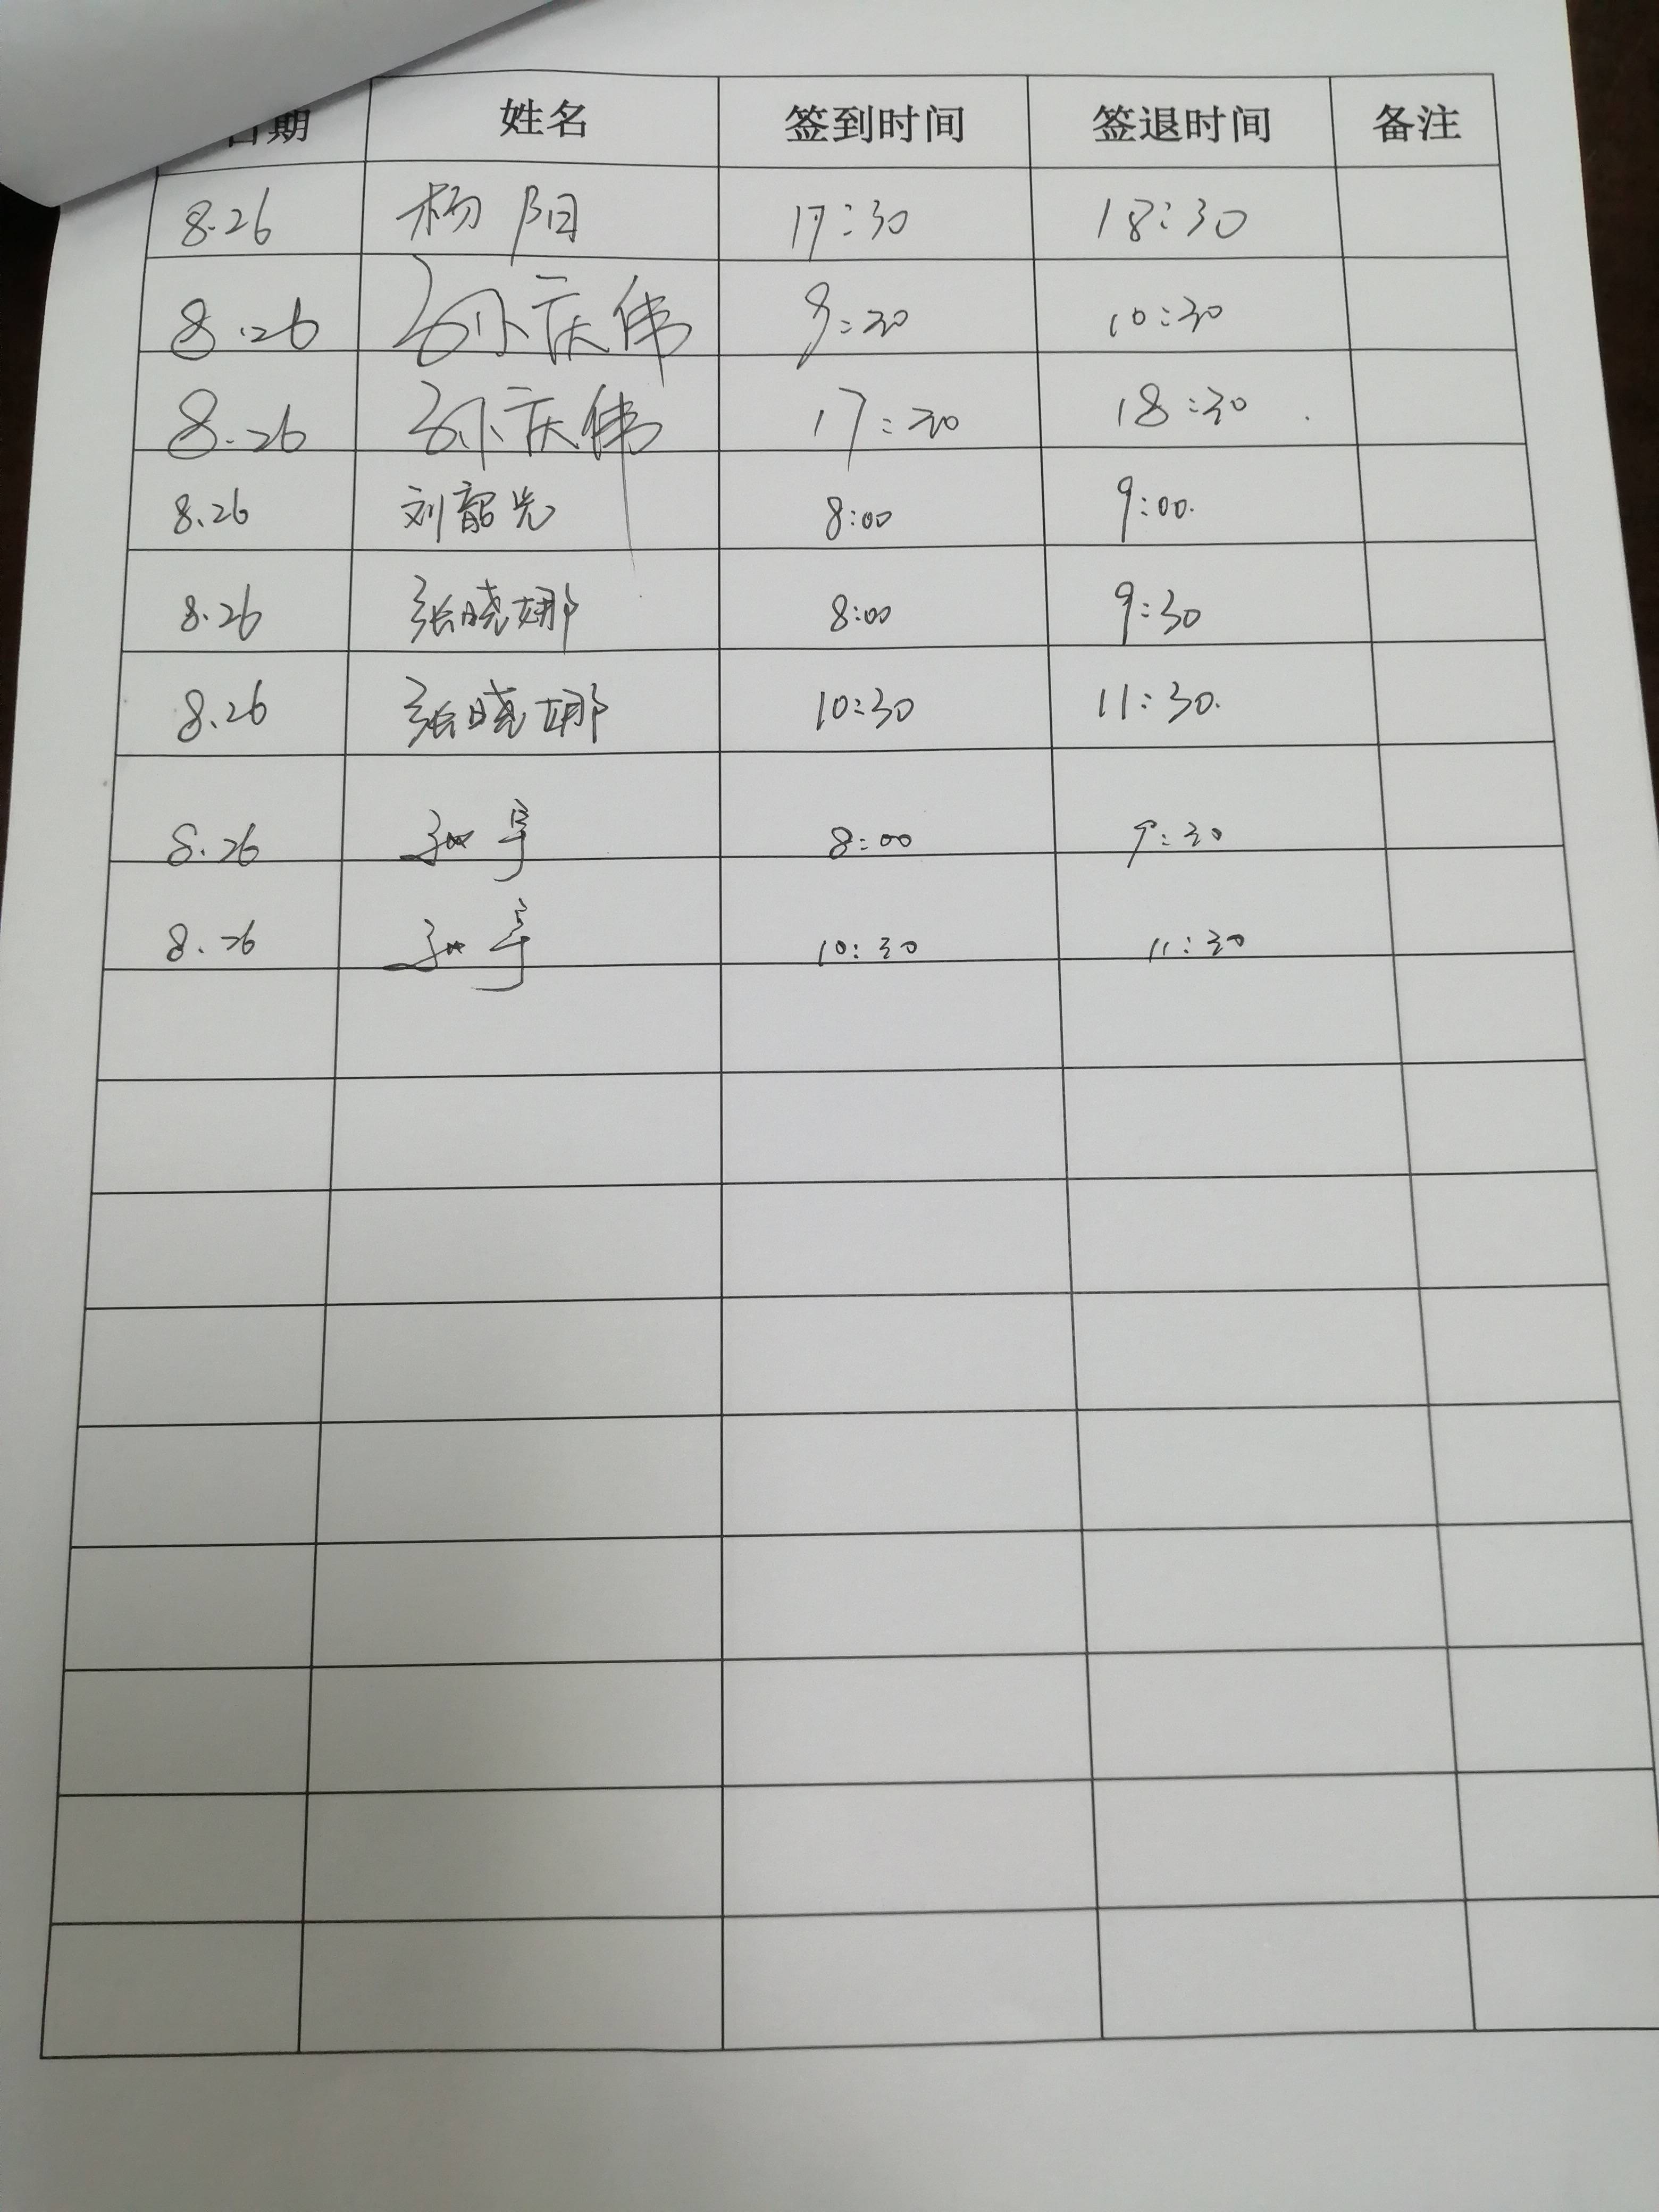 日期 姓名 签到时间 签退时间 备注
8.26 杨阳 17:30 18:30
8.26 孙庆伟 9:30 10:30
8.26 孙庆伟 17:30 18:30
8.26 刘韶光 8:00 9:00.
8.26 张晓娜 8:00 9:30
8.26 张晓娜 10:30 11:30.
8.26 8:00 9:30
8.26 10:30 11:30